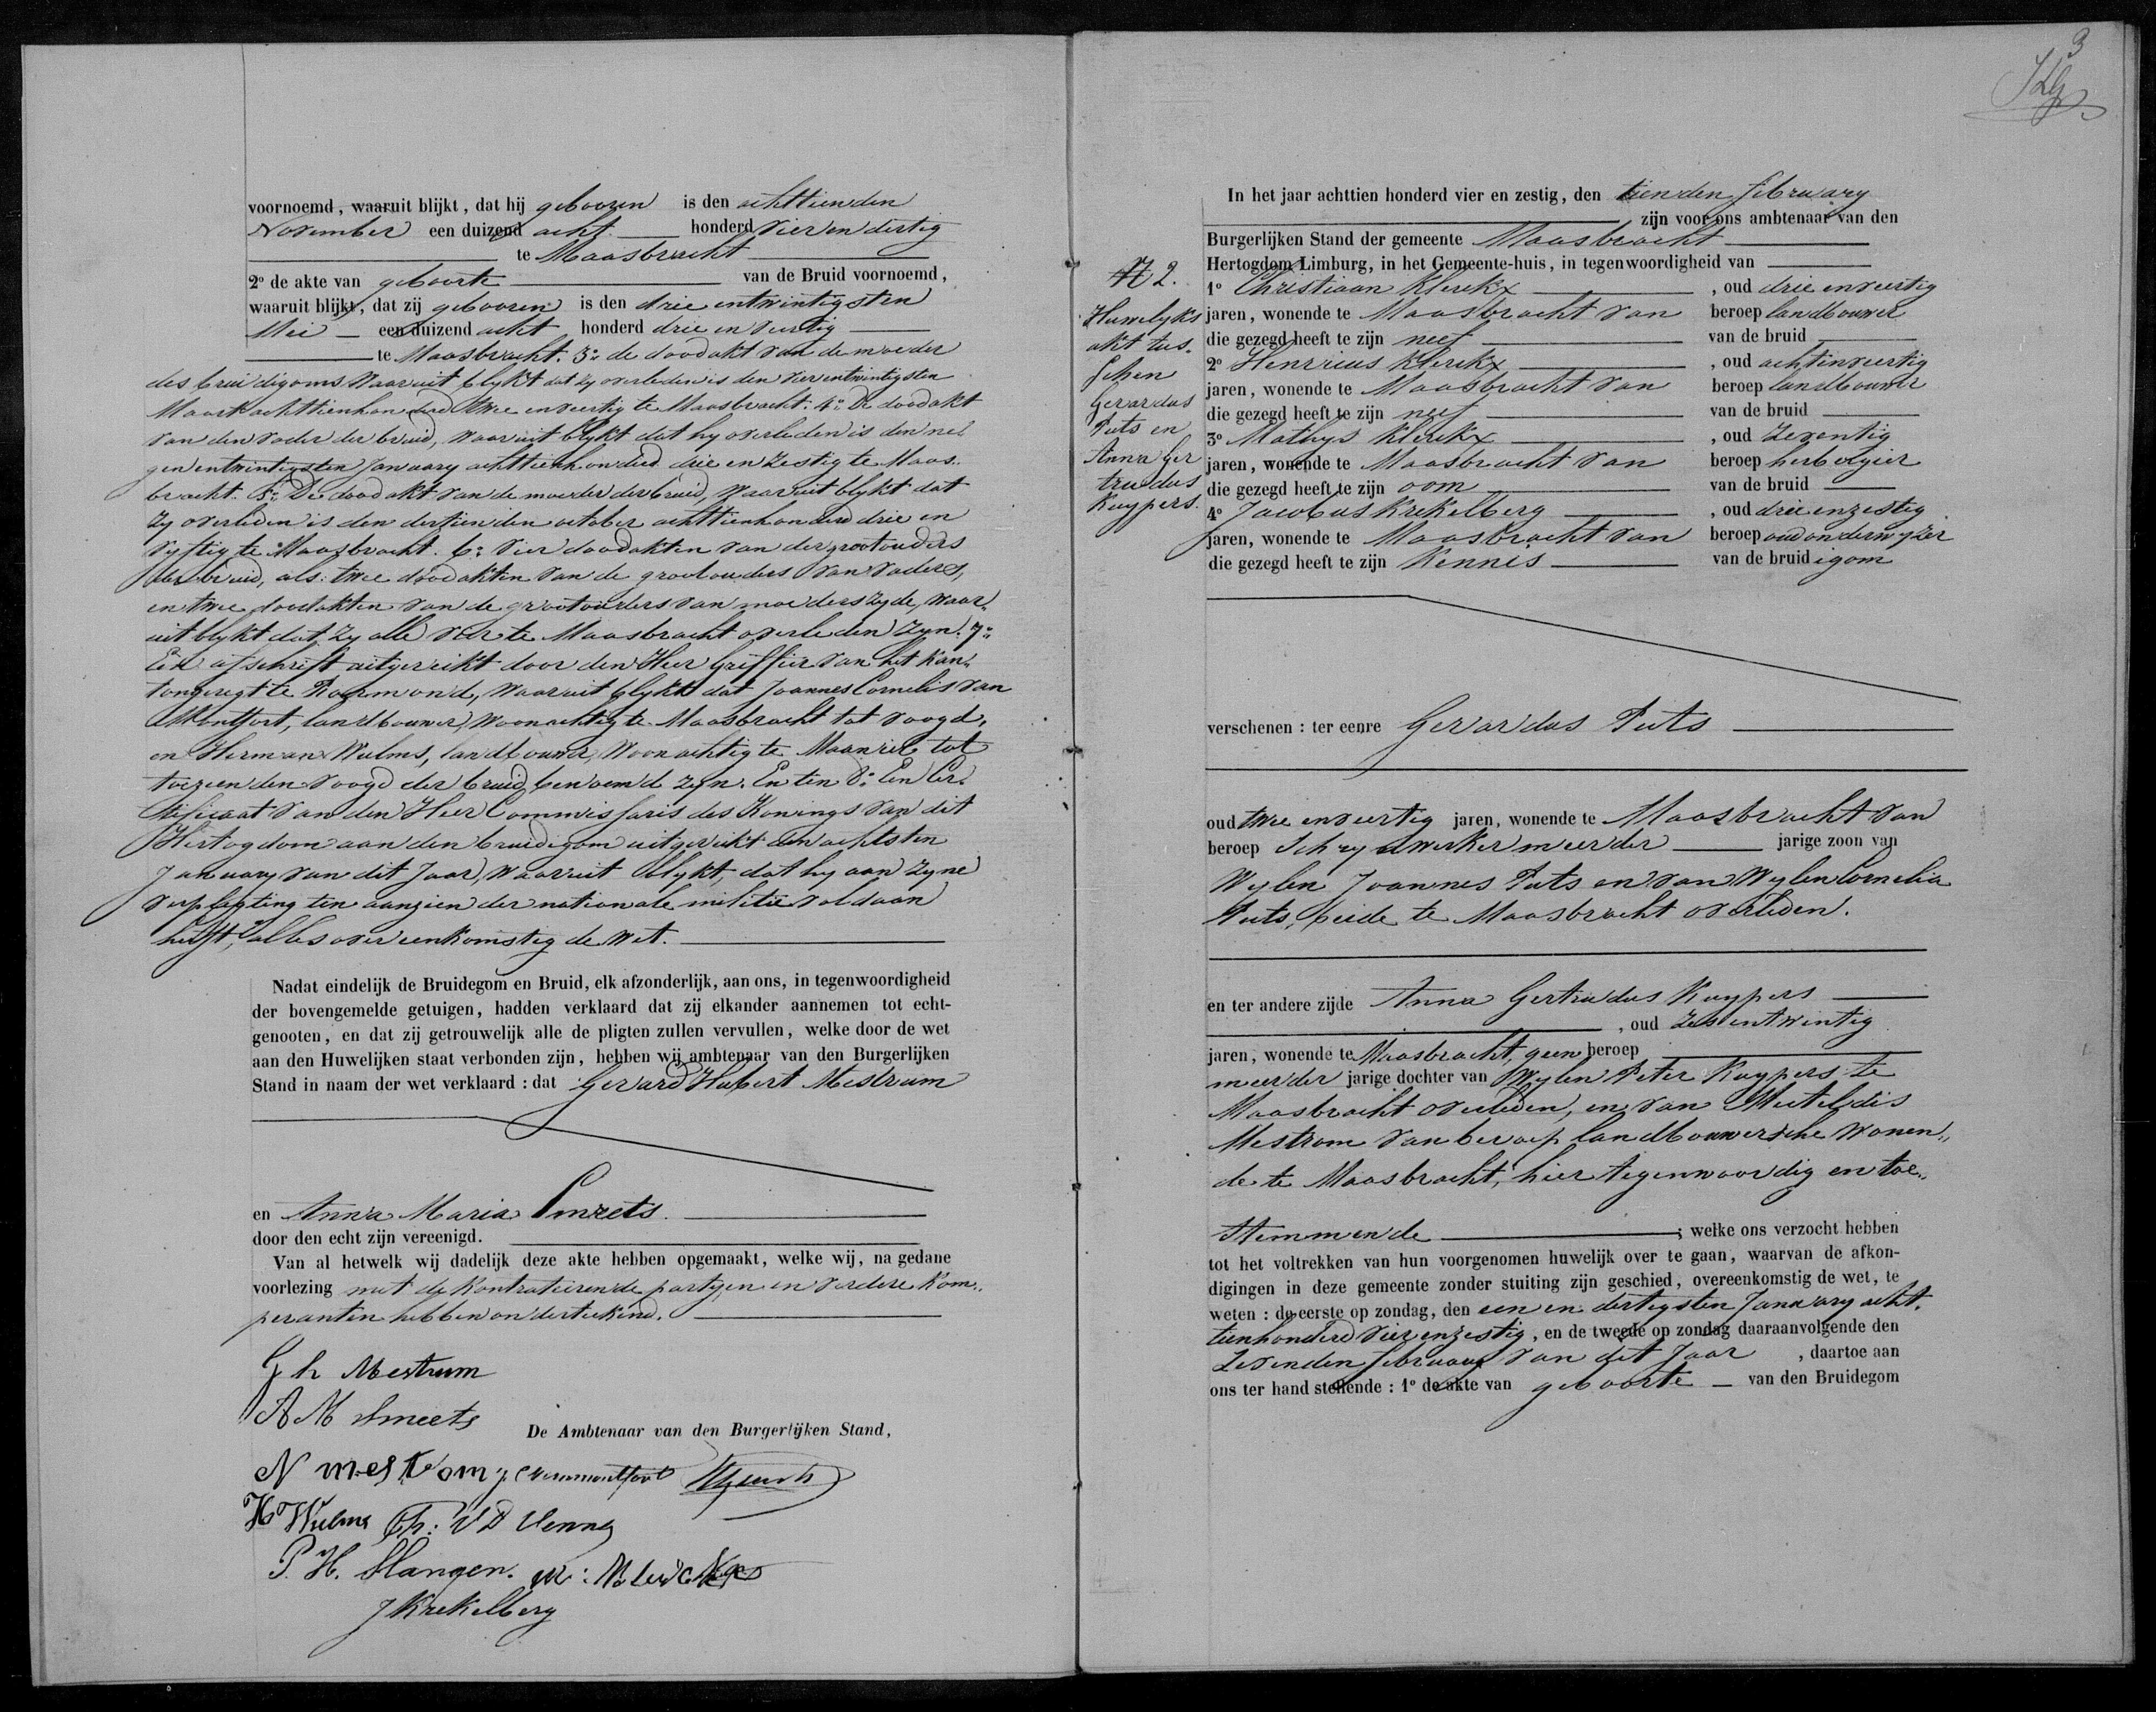 voornoemd, waaruit blijkt, dat hij geboren is den achttienden
November een duizend acht honderd vier en dertig
te Maasbracht
2° de akte van geboorte van de Bruid voornoemd,
waaruit blijkt, dat zij geboren is den drie entwintigsten
Mei een duizend acht honderd drie en veertig
te Maasbracht. 3° de doodakt van de moeder
des bruidigoms waaruit blykt dat zy overleden is den vier entwintigsten
Maart achttienhonderd twee enveertig te Maasbracht. 4° De doodakt
van den vader der bruid, waaruit blykt dat hy overleden is den ne-
gen entwintigsten January achttienhonderd drie en zestig te Maas-
bracht. 5° De doodakt van de moeder der bruid, waaruit blykt dat
zy overleden is den dertienden october achttienhonderd drie en
vyftig te Maasbracht. 6° vier doodakten van der grootouders
der bruid, als: twee doodakten van de grootouders van vaders,
en twee doodakten van de grootouders van moederszyde, waar-
uit blykt dat zy alle vier te Maasbracht overleden zyn. 7°
Een afschrift uitgereikt door den Heer Griffier van het Kan-
tongeregt te Roermond, waaruit blykt dat Joannes Cornelis van
Montfort, landbouwer, woonachtig te Maasbracht tot voogd,
en Herman Wulms, landbouwer woonachtig te Maaniel tot
toezienden voogd der bruid benoemd zyn. En ten 8° Een Cer-
tificaat van den Heer Commissaris des Konings van dit
Hertogdom aan den bruidigom uitgereikt den achtsten
January van dit Jaar, waaruit blykt, dat hy aan zyne
verpligting ten aanzien der nationale militie voldaan
heeft, alles overeenkomstig de wet.
Nadat eindelijk de Bruidegom en Bruid, elk afzonderlijk, aan ons, in tegenwoordigheid
der bovengemelde getuigen, hadden verklaard dat zij elkander aannemen tot echt-
genooten, en dat zij getrouwelijk alle de pligten zullen vervullen, welke door de wet
aan den Huwelijken staat verbonden zijn, hebben wij ambtenaar van den Burgerlijken
Stand in naam der wet verklaard: dat Gerard Hubert Mestrum
en Anna Maria Smeets
door den echt zijn vereenigd.
Van al hetwelk wij dadelijk deze akte hebben opgemaakt, welke wij, na gedane
voorlezing met de kontrateirende partyen en verdere kom-
peranten hebben onderteekend.
G h Mestrum
A M Smeets
De Ambtenaar van den Burgerlijken Stand,
N mestrom J C vanmontfort
H Wulms Ch: V D Venne
P. H. Slangen.
J Krekelberg
3
In het jaar achttien honderd vier en zestig, den tienden february
zijn voor ons ambtenaar van den
Burgerlijken Stand der gemeente Maasbracht
Hertogdom Limburg, in het Gemeente-huis, in tegenwoordigheid van
N 2.
Huwelyks
akt tus-
schen
Gerardus
Puts en
Anna Ger
trudus
Kuypers.
1° Christiaan Klerckx, oud drie enveertig
jaren, wonende te Maasbracht van beroep landbouwer
die gezegd heeft te zijn neef van de bruid
2° Henricus Klerckx, oud achtenveertig
jaren, wonende te Maasbracht van beroep landbouwer
die gezegd heeft te zijn neef van de bruid
3° Mathys Klerckx, oud zeventig
jaren, wonende te Maasbracht van beroep herbergier
die gezegd heeft te zijn oom van de bruid
4° Jacobus Krekelberg, oud drie enzestig
jaren, wonende te Maasbracht van beroep oud onderwyzer
die gezegd heeft te zijn Kennis van de bruidigom
verschenen: ter eenre Gerardus Puts
oud twee enveertig jaren, wonende te Maasbracht van
beroep Schrynwerker meerder jarige zoon van
Wylen Joannes Puts en van Wylen Cornelia
Puts, beide te Maasbracht overleden.
en ter andere zijde Anna Gertrudus Kuypers
, oud zes entwintig
jaren, wonende te Maasbracht, geen beroep
meerder jarige dochter van Wylen Peter Kuypers te
Maasbracht overleden, en van Meteldis
Mestrom van beroep landbouwersche wonen-
de te Maasbracht, hier tegenwoordig en toe-
stemmende; welke ons verzocht hebben
tot het voltrekken van hun voorgenomen huwelijk over te gaan, waarvan de afkon-
digingen in deze gemeente zonder stuiting zijn geschied, overeenkomstig de wet, te
weten: de eerste op zondag, den een en dertigsten January acht-
tienhonderd vier enzestig, en de tweede op zondag daaraanvolgende den
zevenden february van dit Jaar, daartoe aan
ons ter hand stellende: 1° de akte van geboorte van den Bruidegom